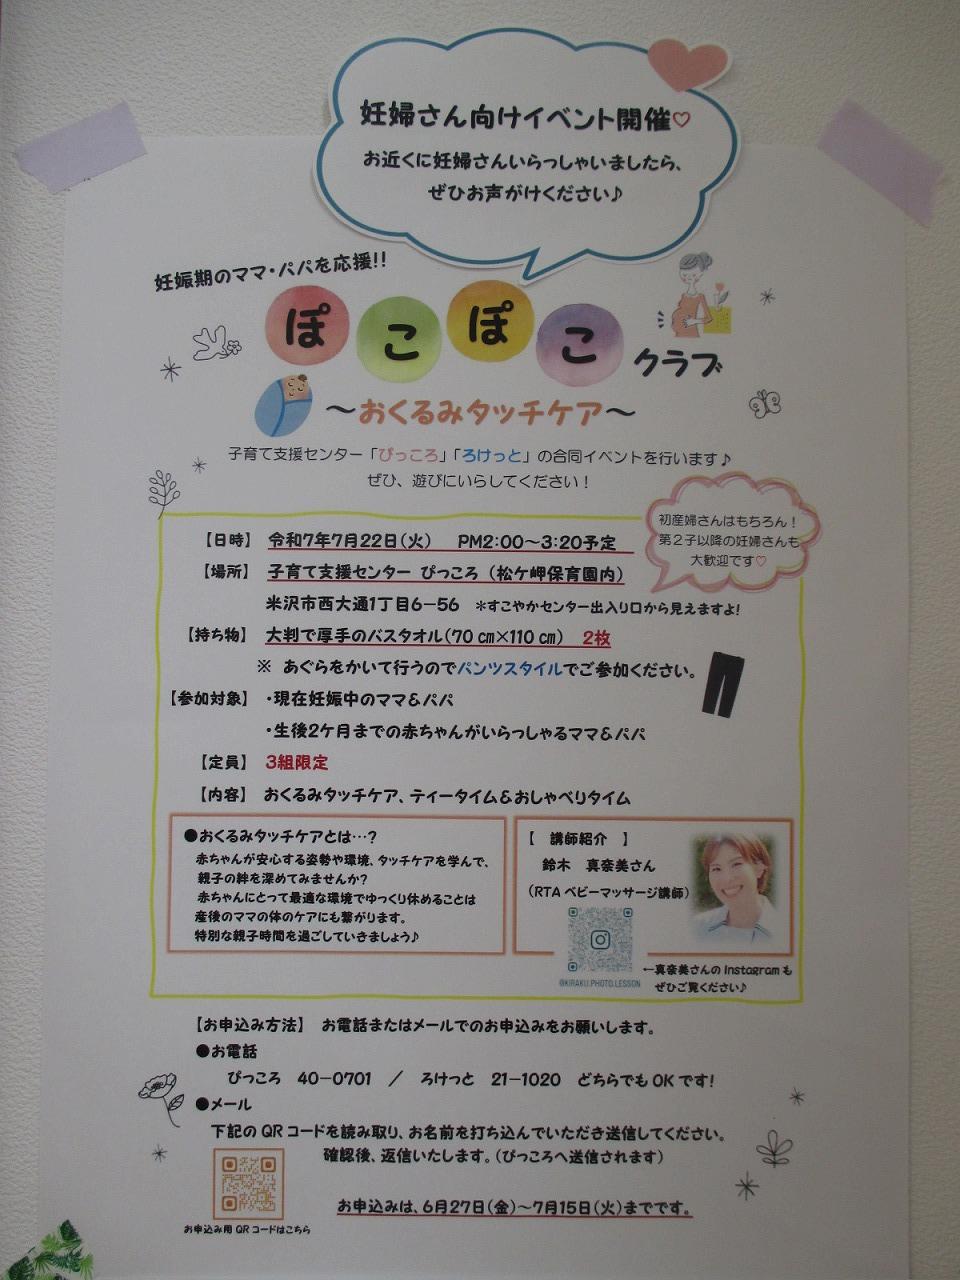 妊婦さん向けイベント開催♡
お近くに妊婦さんいらっしゃいましたら、
ぜひお声がけください♪
妊娠期のママ・パパを応援!!
ぽこぽこクラブ
～おくるみタッチケア～
子育て支援センター「ぴっころ」「ろけっと」の合同イベントを行います♪
ぜひ、遊びにいらしてください！
初産婦さんはもちろん！
第2子以降の妊婦さんも
大歓迎です♡
【日時】 令和7年7月22日(火) PM2:00～3:20予定
【場所】 子育て支援センター ぴっころ (松ケ岬保育園内)
米沢市西大通1丁目6-55 *すこやかセンター出入り口から見えますよ!
【持ち物】 大判で厚手のバスタオル(70㎝×110㎝) 2枚
※ あぐらをかいて行うのでパンツスタイルでご参加ください。
【参加対象】 ・現在妊娠中のママ&パパ
・生後2ケ月までの赤ちゃんがいらっしゃるママ&パパ
【定員】 3組限定
【内容】 おくるみタッチケア、ティータイム&おしゃべりタイム
●おくるみタッチケアとは…?
赤ちゃんが安心する姿勢や環境、タッチケアを学んで、
親子の絆を深めてみませんか?
赤ちゃんにとって最適な環境でゆっくり休めることは
産後のママの体のケアにも繋がります。
特別な親子時間を過ごしていきましょう♪
【 講師紹介 】
鈴木 真奈美さん
(RTAベビーマッサージ講師)
@KIRAKU.PHOTO.LESSON
←真奈美さんのInstagramも
ぜひご覧ください♪
【お申込み方法】 お電話またはメールでのお申込みをお願いします。
●お電話
ぴっころ 40-0701 / ろけっと 21-1020 どちらでもOKです!
●メール
下記のQRコードを読み取り、お名前を打ち込んでいただき送信してください。
確認後、返信いたします。(ぴっころへ送信されます)
お申込みは、6月27日(金)～7月15日(火)までです。
お申込み用QRコードはこちら